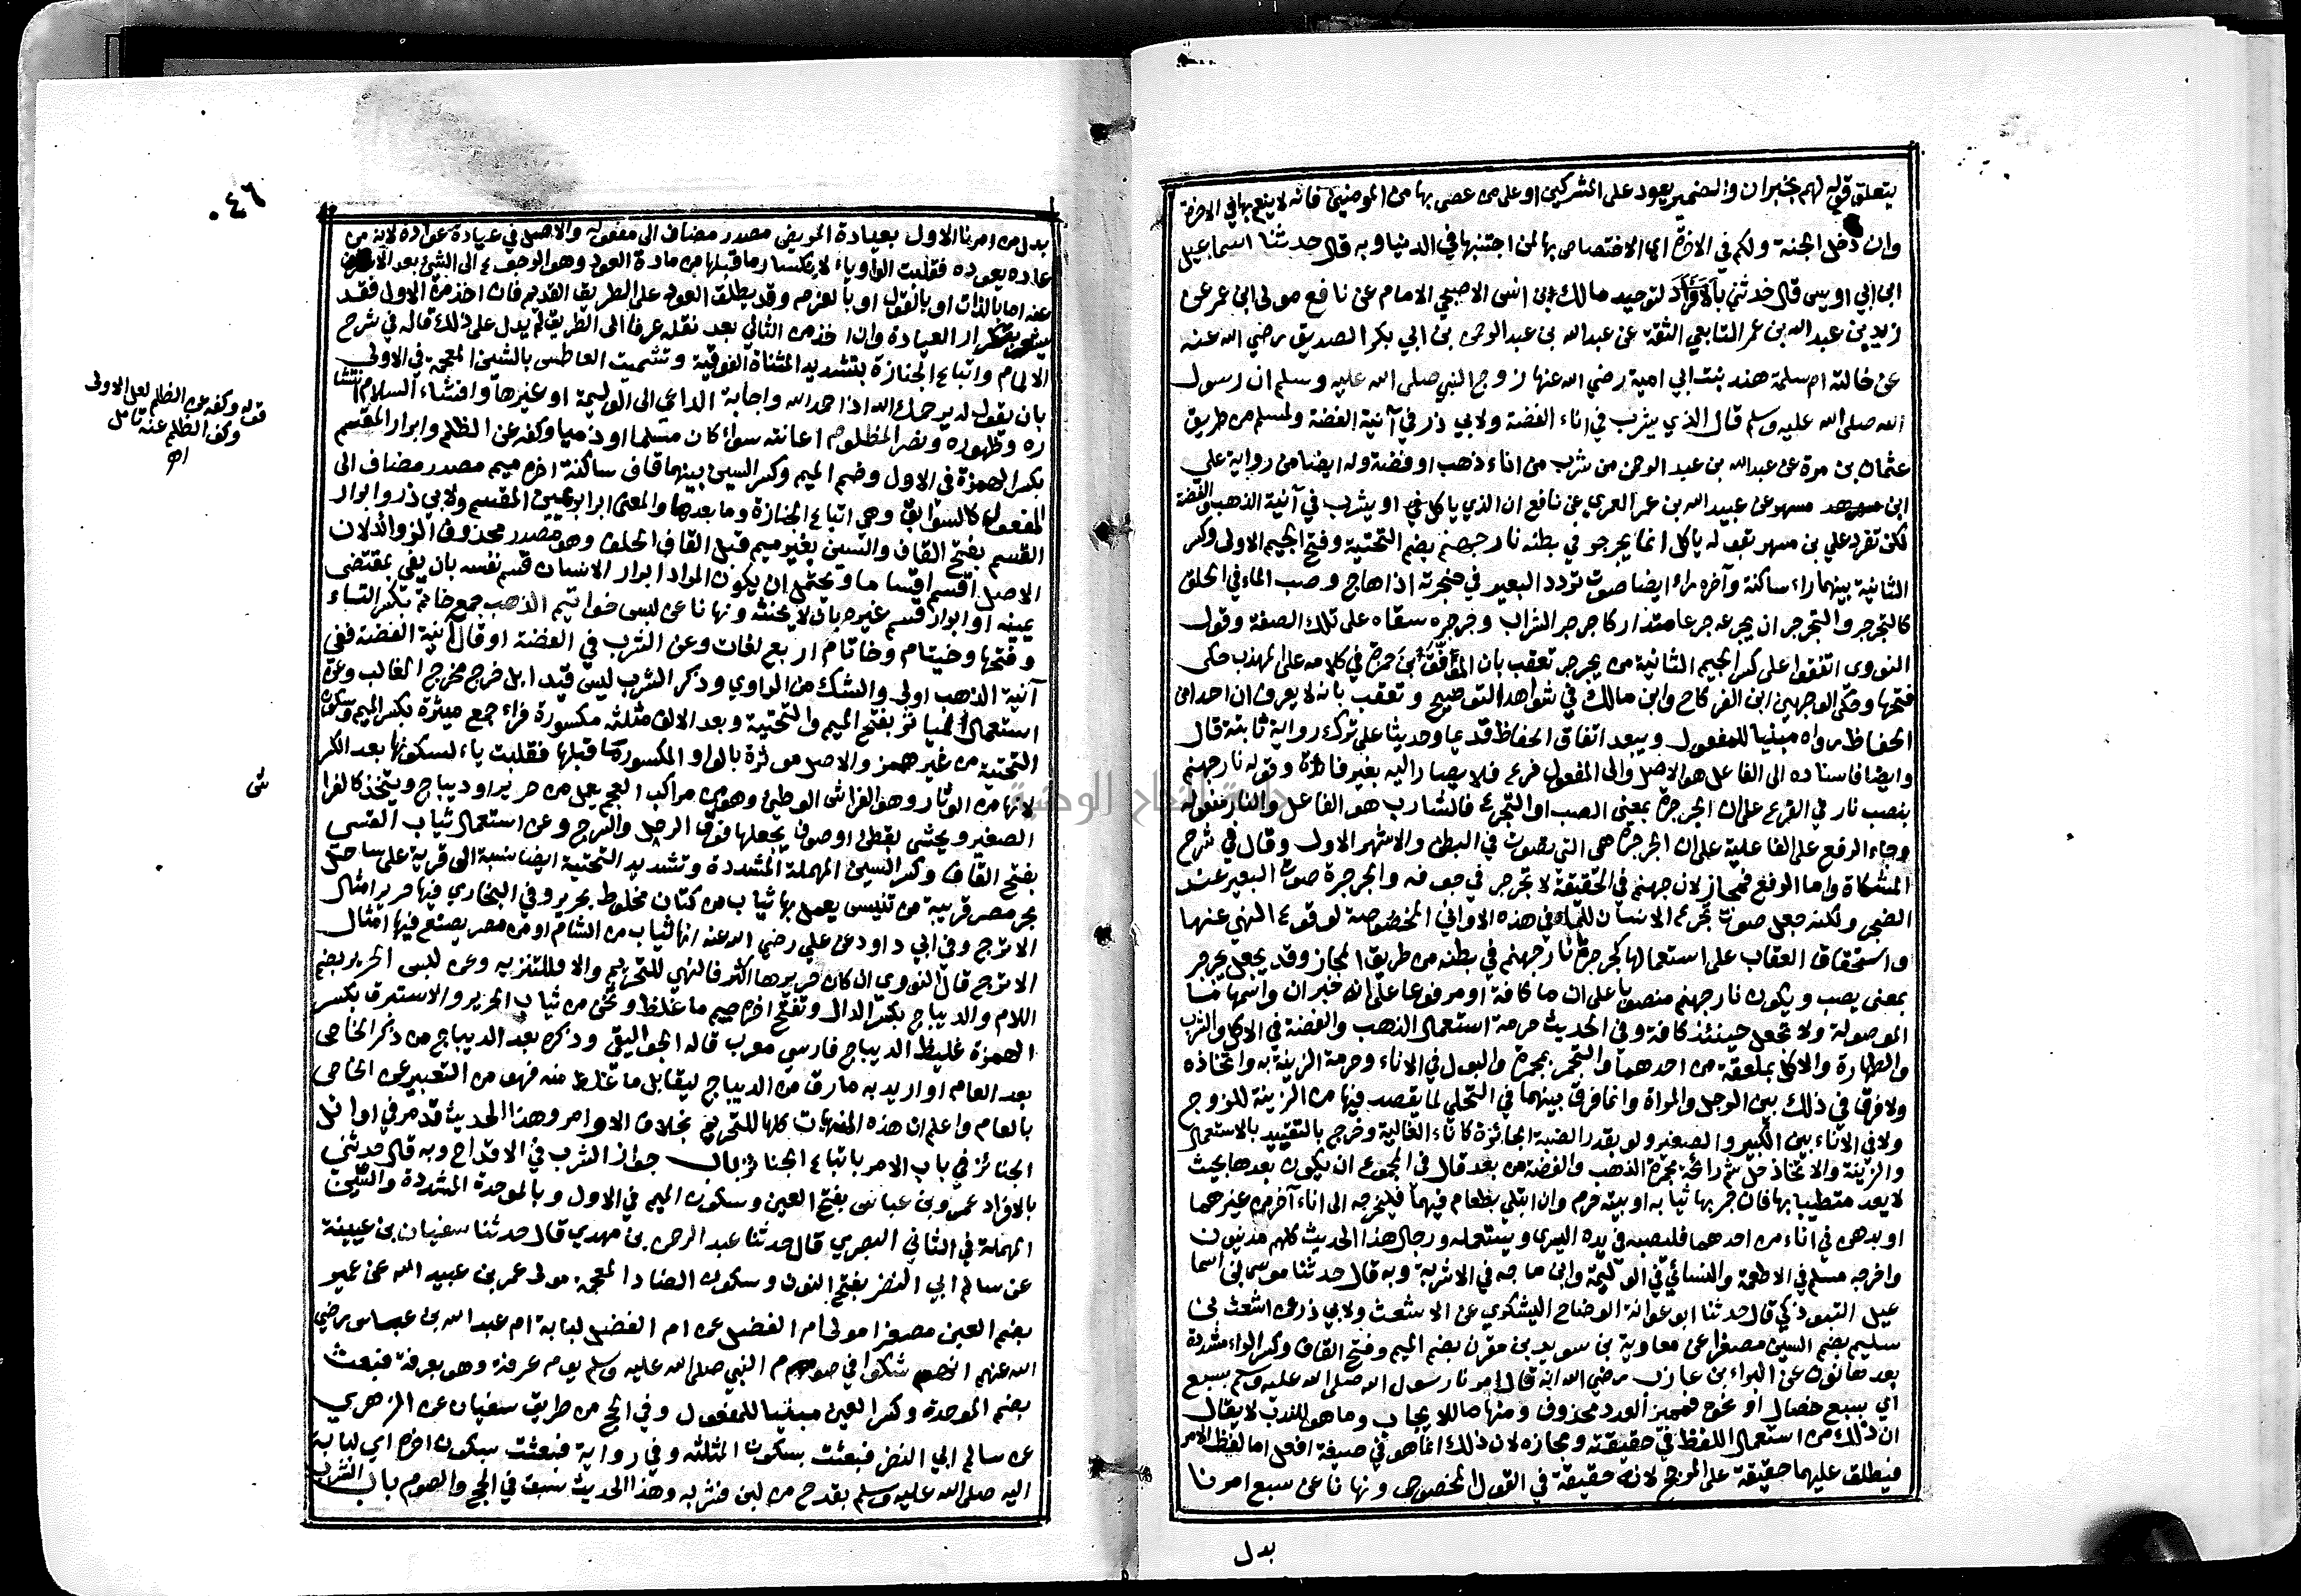 يتعلق قوله لهم بخبران والضمير يعود على المشركين او على من عصى بها من المومنين فانه لا ينعم بها في الاخرة
وان دخل الجنة ولكم في الاخرة اي الاختصاص بها لمن اجتنبها في الدنيا وبه قال حدثنا اسماعيل
ابن ابي اويس قال حدثني بالافراد لتوحيد مالك بن انس الاصبحي الامام عن نافع مولى ابن عمر عن
زيد بن عبد الله بن عمر التابعي الثقة عن عبد الله بن عبد الرحمن بن ابي بكر الصديق رضي الله عنه
عن خالته ام سلمة هند بنت ابي امية رضي الله عنها زوج النبي صلى الله عليه وسلم ان رسول
الله صلى الله عليه وسلم قال الذي يشرب في اناء الفضة ولابي ذر في آنية الفضة ولمسلم من طريق
عثمان بن مرة عن عبد الله بن عبد الرحمن من شرب من اناء ذهب او فضة وله ايضا من رواية علي
ابن مسهر عن عبيد الله بن عمر العمري عن نافع ان الذي ياكل او يشرب في آنية الذهب والفضة
لكن تفرد علي بن مسهر بقوله ياكل انما يجرجر في بطنه نار جهنم بضم التحتية وفتح الجيم الاولى وكسر
الثانية بينهما راء ساكنة وآخره راء ايضا صوت تردد البعير في حنجرته اذا هاج وصب الماء في الحلق
كالتجرجر والتجرجر ان يجرعه جرعا متداركا جرجر الشراب وجرجره سقاه على تلك الصفة وقول
النووي اتفقوا على كسر الجيم الثانية من يجرجر تعقب بان الموفق بن حمزة في كلامه على المهذب حكى
فتحها وحكى الوجهين ابن الفركاح وابن مالك في شواهد التوضيح وتعقب بانه لا يعرف ان احدا من
الحفاظ رواه مبنيا للمفعول ويبعد اتفاق الحفاظ قديما وحديثا على ترك رواية ثابتة قال
وايضا فاسناده الى الفاعل هو الاصل والى المفعول فرع فلا يصار اليه بغير فائدة وقوله نار جهنم
بنصب نار في الفرع على ان الجرجرة بمعنى الصب او التجرع فالشارب هو الفاعل والنار مفعوله
وجاء الرفع على الفاعلية على ان الجرجرة هي التي تصوت في البطن والاشهر الاول وقال في شرح
المشكاة واما الرفع فمجاز لان جهنم في الحقيقة لا تجرجر في جوفه والجرجرة صوت البعير عند
الضجر ولكنه جعل صوت تجرع الانسان للماء في هذه الاواني المخصوصة لوقوع النهي عنها
واستحقاق العقاب على استعمالها كجرجرة نار جهنم في بطنه من طريق المجاز وقد يجعل يجرجر
بمعنى يصب ويكون نار جهنم منصوبا على ان ما كافة او مرفوعا على انه خبر ان واسمها ما
الموصولة ولا تجعل حينئذ كافة وفي الحديث حرمة استعمال الذهب والفضة في الاكل والشرب
والطهارة والاكل بملعقة من احدهما والتجمر بمجمرة والبول في الاناء وحرمة الزينة به واتخاذه
ولا فرق في ذلك بين الرجل والمراة وانما فرق بينهما في التحلي لما يقصد فيها من الزينة للزوج
ولا في الاناء بين الكبير والصغير ولو بقدر الضبة الجائزة كاناء الغالية وخرج بالتقييد بالاستعمال
والزينة والاتخاذ حل شم رائحة مجمرة الذهب والفضة من بعد قال في المجموع ان يكون بعدها بحيث
لا يعد متطيبا بها فان جمر بها ثيابه او بيته حرم وان ابتلي بطعام فيهما فليخرجه الى اناء آخر من غيرهما
او بدهن في اناء من احدهما فليصبه في يده اليسرى ويستعمله ورجال هذا الحديث كلهم مدنيون
واخرجه مسلم في الاطعمة والنسائي في الوليمة وابن ماجه في الاشربة وبه قال حدثنا موسى بن اسما
عيل التبوذكي قال حدثنا ابو عوانة الوضاح اليشكري عن الاشعث ولابي ذر عن اشعث بن
سليم بضم السين مصغرا عن معاوية بن سويد بن مقرن بضم الميم وفتح القاف وكسر الراء مشددة
بعدها نون عن البراء بن عازب رضي الله انه قال امرنا رسول الله صلى الله عليه وسلم بسبع
اي بسبع خصال او نحوه فمميز العدد محذوف ومنها ما للايجاب وما هو للندب لا يقال
ان ذلك من استعمال اللفظ في حقيقته ومجازه لان ذلك انما هو في صيغة افعل اما لفظ الامر
فيطلق عليهما حقيقة على المرجح لانه حقيقة في القول المخصوص ونهانا عن سبع امرنا
بدل
٠٤٦
بدل من امرنا الاول بعيادة المريض مصدر مضاف الى مفعوله والاصل في عيادة عوادة لانه من
عاده يعوده فقلبت الواو ياء لانكسار ما قبلها من مادة العود وهو الرجوع الى الشئ بعد الانصراف
عنه اما بالذات او بالقول او بالعزم وقد يطلق العود على الطريق القديم فان اخذ من الاول فقد
يشعر بتكرار العيادة وان اخذ من الثاني بعد نقله عرفا الى الطريق لم يدل على ذلك قاله في شرح
الالمام واتباع الجنازة بتشديد المثناة الفوقية وتشميت العاطس بالشين المعجمة في الاولى
بان يقول له يرحمك الله اذا حمد الله واجابة الداعي الى الوليمة او غيرها وافشاء السلام انتشا
ره وظهوره ونصر المظلوم اعانته سواء كان مسلما او ذميا وكفه عن الظلم وابرار المقسم
بكسر الهمزة في الاول وضم الميم وكسر السين بينهما قاف ساكنة اخره ميم مصدر مضاف الى
المفعول كالسوابق وهي اتباع الجنازة وما بعدها والمعنى ابرار يمين المقسم ولابي ذر وابرار
القسم بفتح القاف والسين بغير ميم قبل القاف الحلف وهو مصدر محذوف الزوائد لان
الاصل اقسم اقساما ويحتمل ان يكون المراد ابرار الانسان قسم نفسه بان يفي بمقتضى
يمينه او ابرار قسم غيره بان لا يحنثه ونهانا عن لبس خواتيم الذهب جمع خاتم بكسر التاء
وفتحها وخيتام وخاتام اربع لغات وعن الشرب في الفضة او قال آنية الفضة ففي
آنية الذهب اولى والشك من الراوي وذكر الشرب ليس قيدا بل خرج مخرج الغالب وعن
استعمال المياثر بفتح الميم والتحتية وبعد الالف مثلثه مكسورة فراء جمع ميثرة بكسر الميم وسكون
التحتية من غير همز والاصل موثرة بالواو المكسور ما قبلها فقلبت ياء لسكونها بعد الكسر
لانها من الوثار وهو الفراش الوطئ وهو من مراكب العجم يعمل من حرير او ديباج ويتخذ كالفراش
الصغير ويحشى بقطن او صوف يجعلها فوق الرحل والسرج وعن استعمال ثياب القسي
بفتح القاف وكسر السين المهملة المشددة وتشديد التحتية ايضا نسبة الى قرية على ساحل
بحر مصر قريبة من تنيس يعمل بها ثياب من كتان مخلوط بحرير وفي البخاري فيها حرير امثال
الاترج وفي ابي داود عن علي رضي الله عنه انها ثياب من الشام او من مصر يصنع فيها امثال
الاترج قال النووي ان كان حريرها اكثر فالنهي للتحريم والا فللتنزيه وعن لبس الحرير بضم
اللام والديباج بكسر الدال وتفتح اخره جيم ما غلظ وثخن من ثياب الحرير والاستبرق بكسر
الهمزة غليظ الديباج فارسي معرب قاله الجواليقي وذكره بعد الديباج من ذكر الخاص
بعد العام او اريد به مارق من الديباج ليقابل ما غلظ منه فهو من التعبير عن الخاص
بالعام واعلم ان هذه المنهيات كلها للتحريم بخلاف الاوامر وهذا الحديث قد مر في اوائل
الجنائز في باب الامر باتباع الجنائز باب جواز الشرب في الاقداح وبه قال حدثني
بالافراد عمرو بن عباس بفتح العين وسكون الميم في الاول وبالموحدة المشددة والسين
المهملة في الثاني البصري قال حدثنا عبد الرحمن بن مهدي قال حدثنا سفيان بن عيينة
عن سالم ابي النضر بفتح النون وسكون الضاد المعجمة مولى عمر بن عبيد الله عن عمير
بضم العين مصغرا مولى ام الفضل عن ام الفضل لبابة ام عبد الله بن عباس رضي
الله عنهم انهم شكوا في صوم النبي صلى الله عليه وسلم يوم عرفة وهو بعرفة فبعث
بضم الموحدة وكسر العين مبنيا للمفعول وفي الحج من طريق سفيان عن الزهري
عن سالم ابي النضر فبعثت بسكون المثلثه وفي رواية فبعثت بسكون اخره اي لبابة
اليه صلى الله عليه وسلم بقدح من لبن فشربه وهذا الحديث سبق في الحج والصوم باب الشرب
قوله وكفه عن الظلم لعل الاولى
وكف الظلم عنه تامل
اهـ